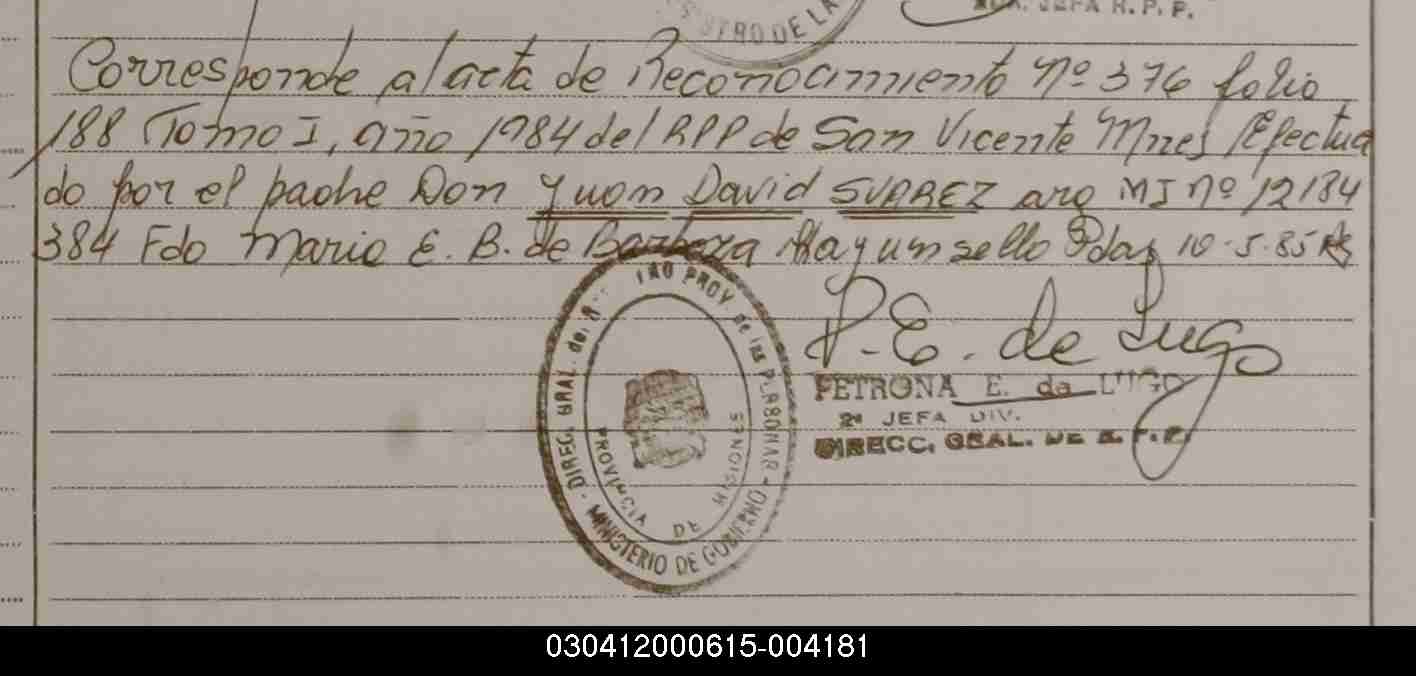 STRO DE LA
JEFA R. P. P.
Corresponde al acta de Reconocimiento Nº 376 folio
188 Tomo I, año 1984 del RPP de San Vicente Mnes, Efectua
do por el padre Don Juan David SUAREZ arg MI nº 12184
384 Fdo Mario E. B. de Barboza Hay un sello Pdas 10-5-85
P. E. de Lugo
PETRONA E. de LUGO
2ª JEFA DIV.
DIRECC. GRAL. DE R. P. P.
DIREC. GRAL. del PROV de las PERSONAS
MINISTERIO DE GOBIERNO
PROVINCIA DE MISIONES
030412000615-004181